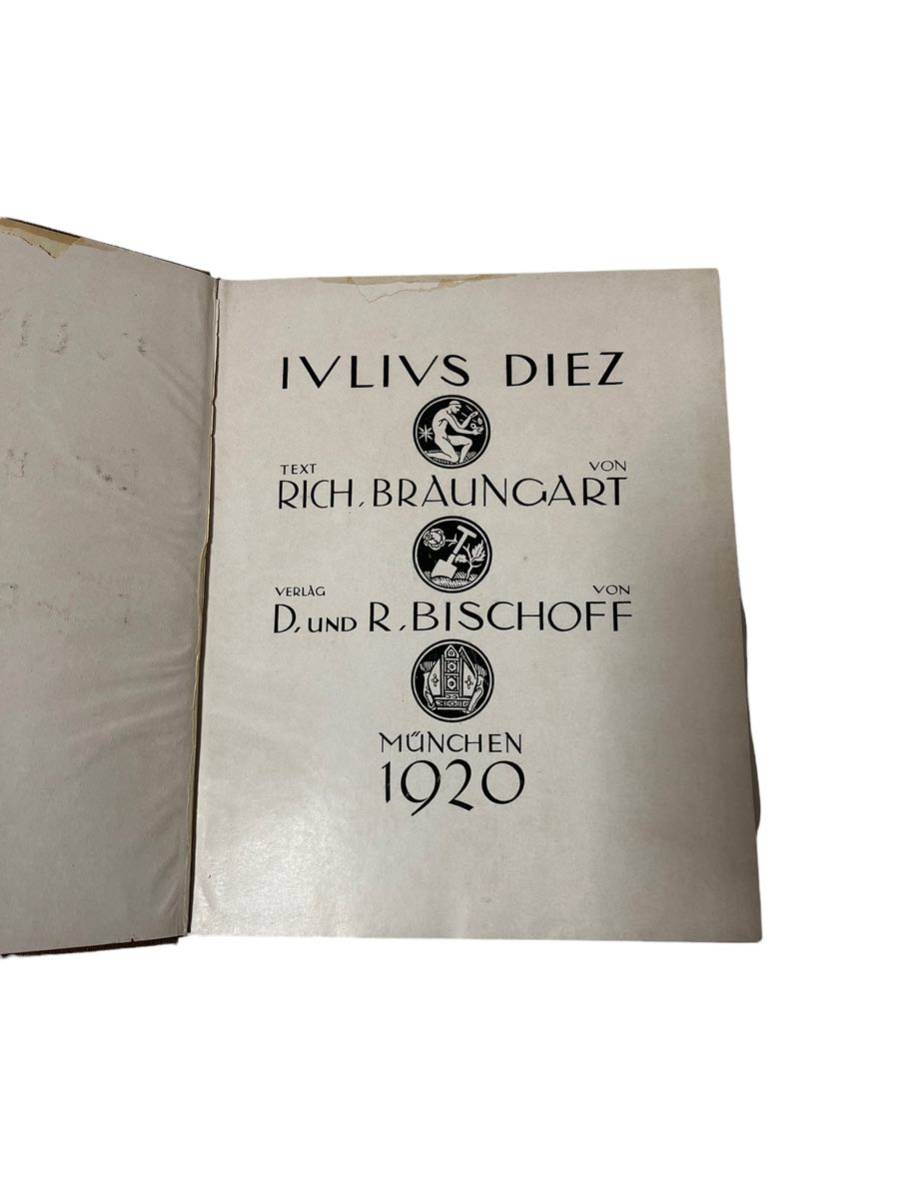 IVLIVS DIEZ
TEXT VON
RICH. BRAUNGART
VERLAG VON
D. UND R. BISCHOFF
MÜNCHEN
1920